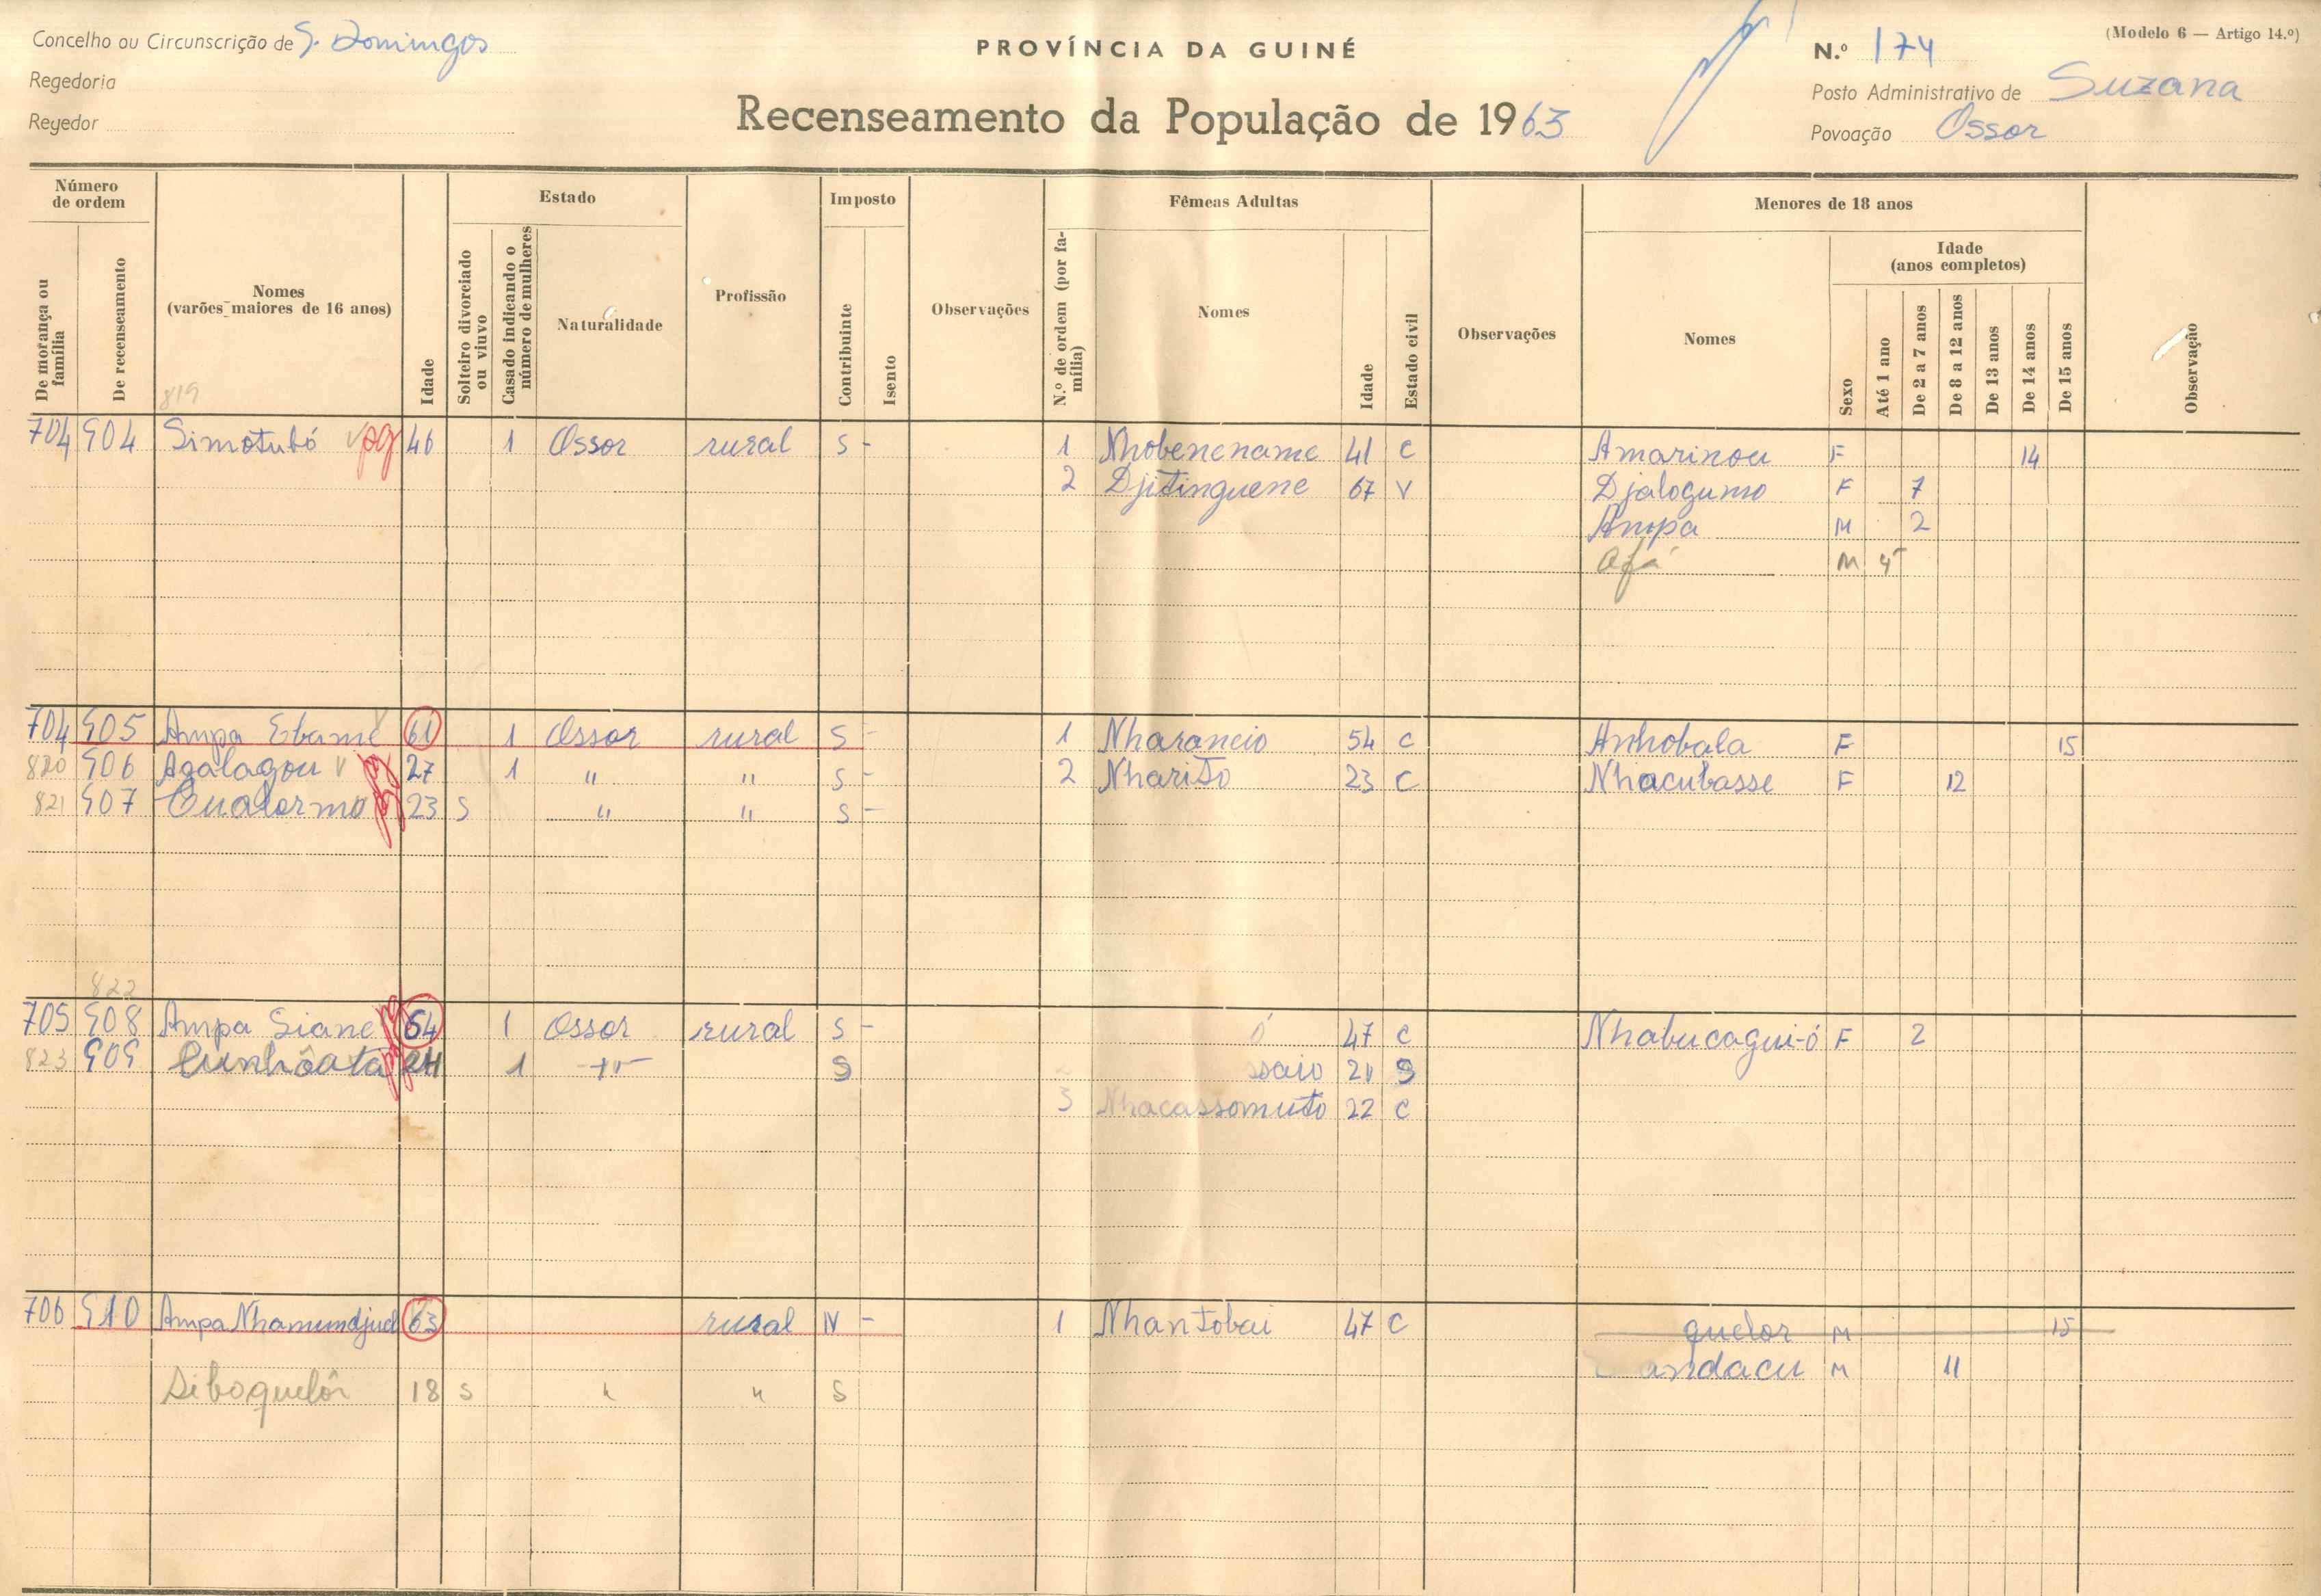 Concelho ou Circunscrição de S. Domingos
Regedoria
Reyedor
PROVÍNCIA DA GUINÉ
Recenseamento da População de 1963
(Modelo 6 — Artigo 14.º)
N.º 174
Posto Administrativo de Suzana
Povoação Ossor
Número de ordem
De morança ou família
De recenseamento
Nomes
(varões maiores de 16 anos)
Idade
Estado
Solteiro divorciado ou viuvo
Casado indicando o número de mulheres
Naturalidade
Profissão
Imposto
Contribuinte
Isento
Observações
Fêmeas Adultas
N.º de ordem (por família)
Nomes
Idade
Estado civil
Observações
Menores de 18 anos
Nomes
Sexo
Idade
(anos completos)
Até 1 ano
De 2 a 7 anos
De 8 a 12 anos
De 13 anos
De 14 anos
De 15 anos
Observação
819
704 904 Simotubó pg 46 1 Ossor rural S - 1 Nhobenename 41 C Amarinou F 14
2 Djitinguene 67 V Djalogumo F 7
Ampa M 2
Afá M
704 905 Ampa Ebame 61 1 Ossor rural S - 1 Nharancio 54 C Anhobala F 15
820 906 Agalagou pg 27 1 " " S - 2 Nharito 23 C Nhacubasse F 12
821 907 Cualormo pg 23 S " " S -
822
705 908 Ampa Siane pg 64 1 Ossor rural S - ó 47 C Nhabucagui-ó F 2
823 909 Cunhôata pg 24 1 S ssaio 21 S
3 Nhacassomuto 22 C
706 910 Ampa Nhamundjud 63 rural N - 1 Nhantobai 47 C quelor M 15
andacu M 11
Siboquelôr 18 S " " S